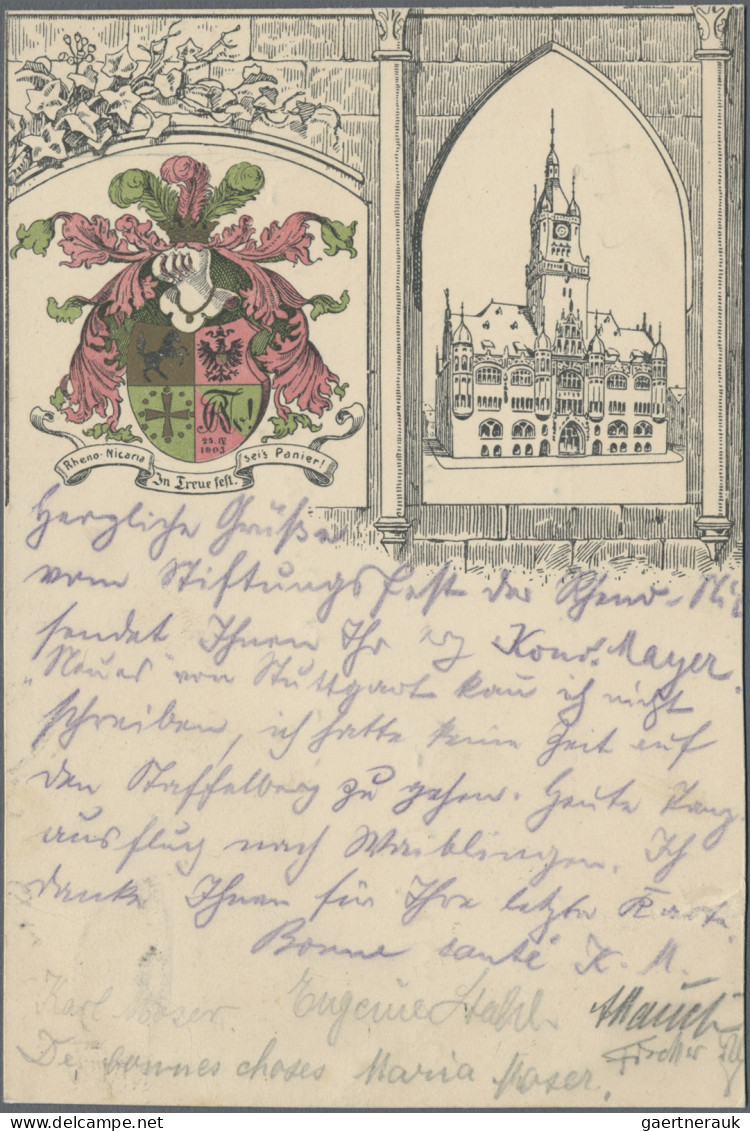 Rheno-Nicaria
In Treue fest.
sei's Panier!
25. IV
1903
Herzliche Grüße
vom Stiftungsfest der Rheno-Nic
sendet Ihnen Ihr Konr. Mayer.
"Neues" von Stuttgart kan ich nicht
schreiben, ich hatte keine Zeit auf
den Staffelberg zu gehen. Heute Tanz-
ausflug nach Waiblingen. Ich
danke Ihnen für Ihre letzte Karte.
Bonne santé K. M.
Karl Moser. Eugenie Stahl.
Fischer
De bonnes choses Maria Moser.
gaertnerauk